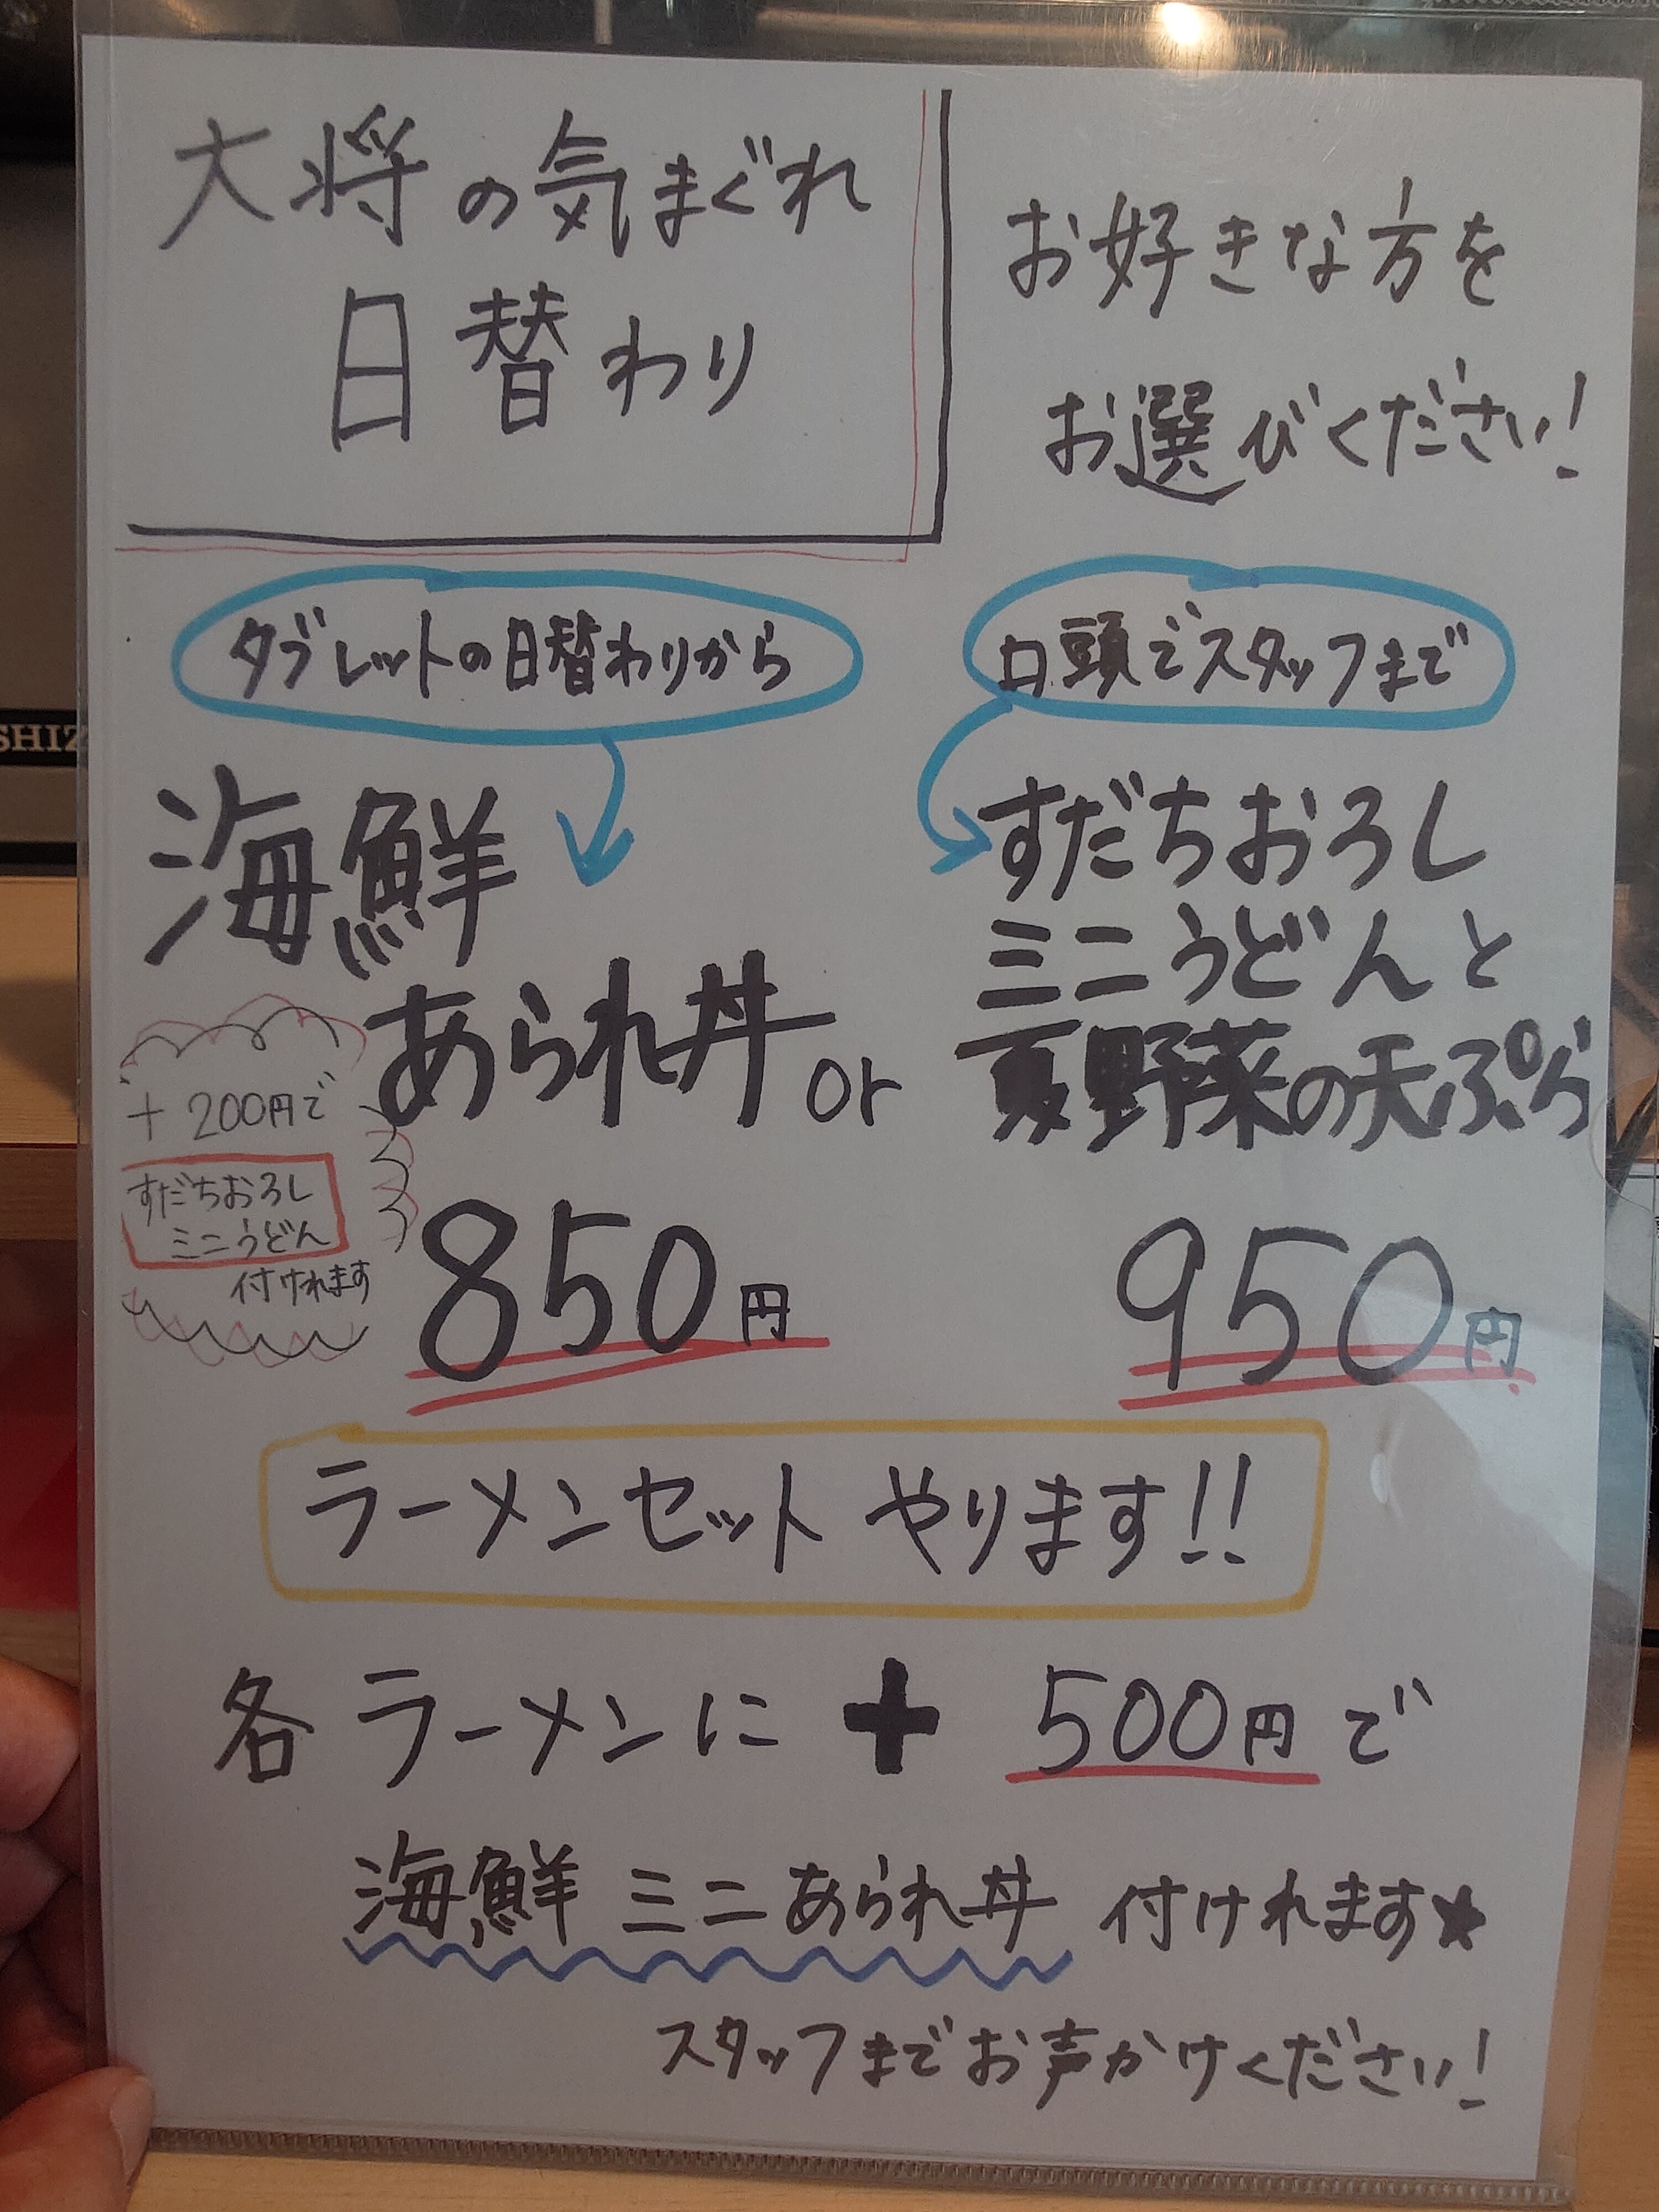 大将の気まぐれ
日替わり
お好きな方を
お選びください!
タブレットの日替わりから
口頭でスタッフまで
海鮮
あられ丼
or
すだちおろし
ミニうどんと
夏野菜の天ぷら
+200円で
すだちおろし
ミニうどん
付けれます
850円
950円
ラーメンセットやります!!
各ラーメンに+500円で
海鮮ミニあられ丼付けれます★
スタッフまでお声かけください!
SHIZ